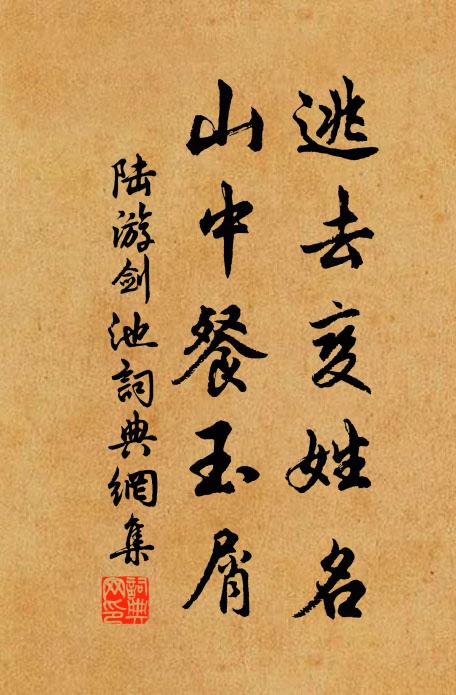 逃去变姓名
山中餐玉屑
陆游剑池詞典網集
詞典网印